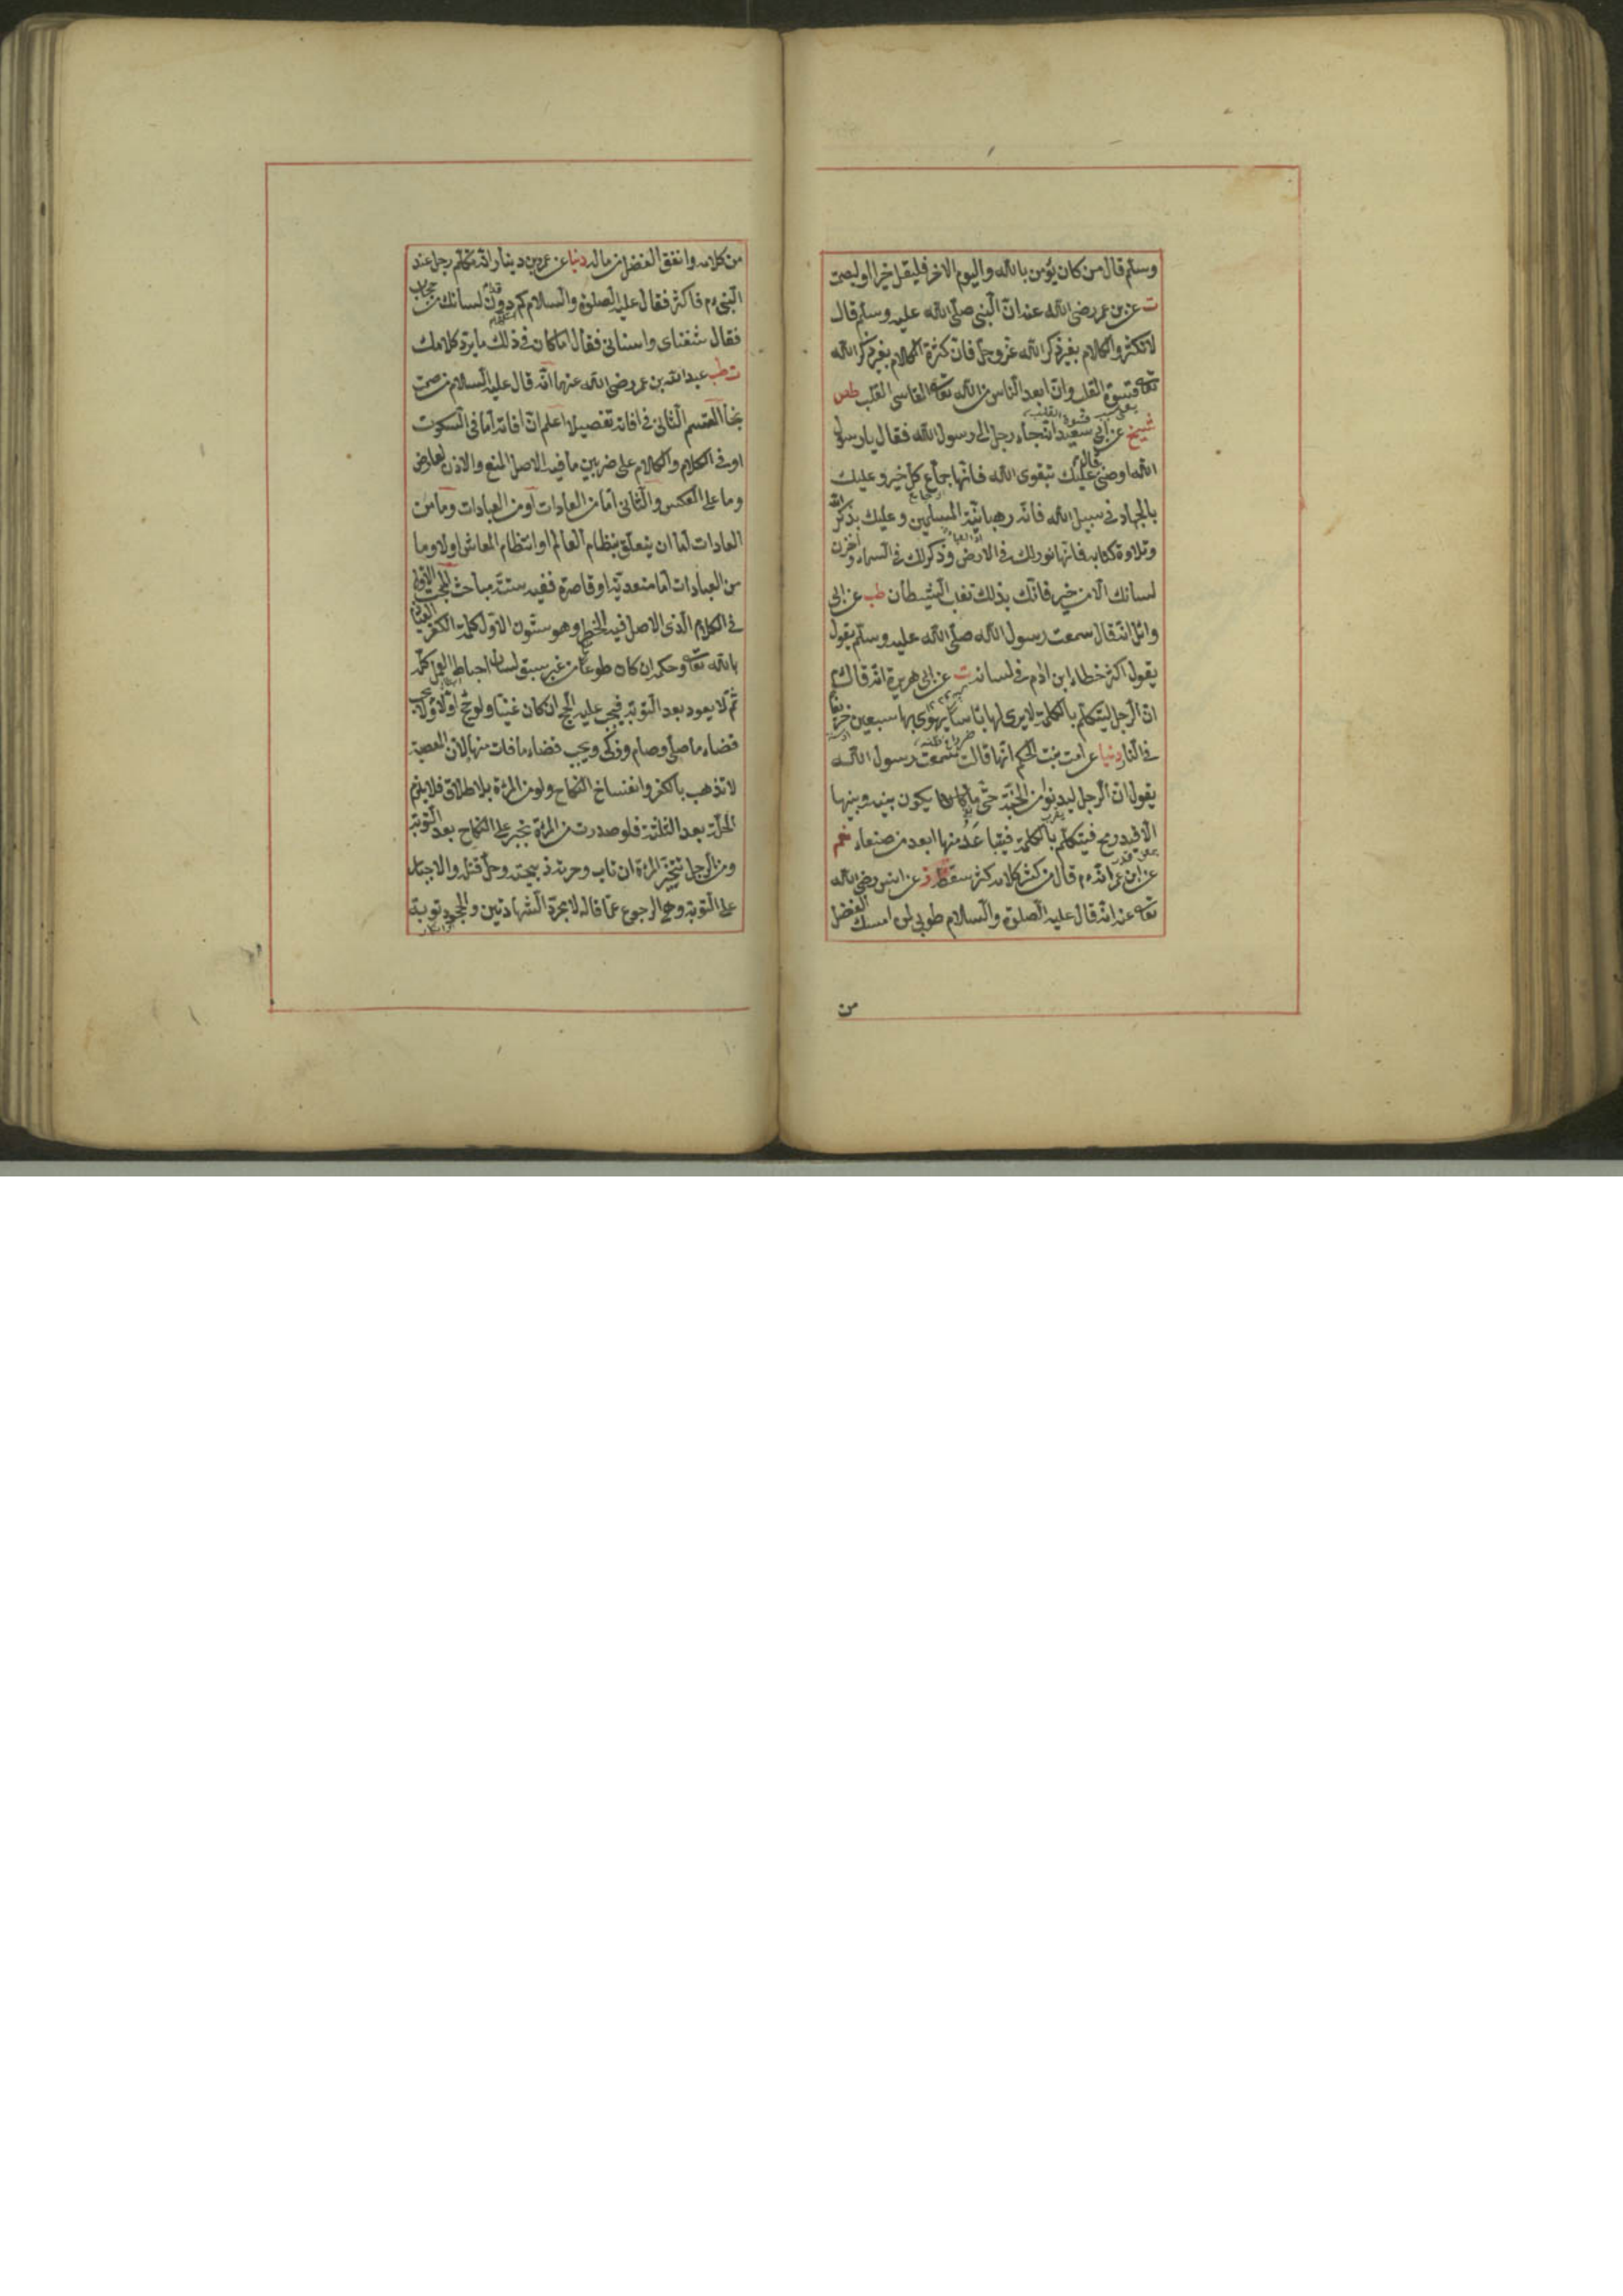 وسلم قال من كان يؤمن بالله واليوم الاخر فليقل خيرا او ليصمت
ت عن بن عمر رضى الله عنه ان النبى صلى الله عليه وسلم قال
لا تكثروا الكلام بغير ذكر الله عز وجل فان كثرة الكلام بغير ذكر الله
تعالى قسوة القلب وان ابعد الناس من الله تعالى القاسى القلب طص
شيخ عن ابى سعيد انه جاء رجل الى رسول الله فقال يا رسول
الله اوصنى قال عليك بتقوى الله فانها جماع كل خير وعليك
بالجهاد فى سبيل الله فانه رهبانية المسلمين وعليك بذكر الله
وتلاوة كتابه فانها نور لك فى الارض وذكر لك فى السماء واخزن
لسانك الا من خير فانك بذلك تغلب الشيطان طب عن ابى
وائل انه قال سمعت رسول الله صلى الله عليه وسلم يقول
يقول اكثر خطاء ابن ادم فى لسانه ت عن ابى هريرة انه قال
ان الرجل ليتكلم بالكلمة لا يرى لها بأسا يهوى بها سبعين خريفا
فى النار دنيا عن امت بنت الحكم انها قالت سمعت رسول الله
يقول ان الرجل ليدنو من الجنة حتى ما يكون بينه وبينها
الا قيد رمح فيتكلم بالكلمة فيتباعد منها ابعد من صنعاء نعم
عن ابن عمر انه م قال من كثر كلامه كثر سقطه ز عن انس رضى الله
تعالى عنه انه قال عليه الصلوة والسلام طوبى لمن امسك الفضل
من
من كلامه وانفق الفضل من ماله دنيا عن عمر بن دينار انه تكلم رجل عند
النبى م فاكثر فقال عليه الصلوة والسلام كم دون لسانك من حجاب
فقال شفتاى واسنانى فقال اما كان فى ذلك ما يرد كلامك
ت طب عبد الله بن عمر رضى الله عنهما انه قال عليه السلام من صمت
نجا القسم الثانى فى افاته تفصيلا اعلم ان افاته اما فى السكوت
او فى الكلام والكلام على ضربين ما فيه الاصل المنع والاذن لعارض
وما على العكس والثانى اما من العادات او من العبادات وما من
العادات اما ان يتعلق بنظام العالم او انتظام المعاش اولا وما
من العبادات اما متعدية او قاصرة ففيه ستة مباحث المبحث الاول
فى الكلام الذى الاصل فيه الحظر وهو ستون الاول كلمة الكفر العياذ
بالله تعالى وحكمه ان كان طوعا من غير سبق لسان احباط العمل كله
ثم لا يعود بعد التوبة فيجب عليه الحج ان كان غنيا ولو حج اولا ولا يجب
قضاء ما صلى وصام وزكى ويجب قضاء ما فات منها لان المعصية
لا تذهب بالكفر وانفساخ النكاح ولو من المرءة بلا طلاق فلا يلزم
الحلة بعد الثلثة فلو صدرت من المرءة تجبر على النكاح بعد التوبة
ومن الرجل تتخير المرءة ان تاب وحرمة ذبيحته وحل قتله والاجبار
على التوبة وهى الرجوع عما قاله لا مجرد الشهادتين والجحود توبة